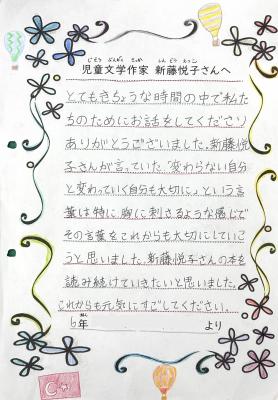 じどう ぶんがく さっか しんどう えつこ
児童文学作家 新藤悦子さんへ
とてもきちょうな時間の中で私た
ちのためにお話をしてくださり
ありがとうございました。新藤悦
子さんが言っていた「変わらない自分
と変わっていく自分も大切に」という言
葉は特に胸に刺さるような感じで
その言葉をこれからも大切にしていこ
うと思いました。新藤悦子さんの本を
読み続けていきたいと思いました。
これからも元気にすごしてください。
ねん
6年 より